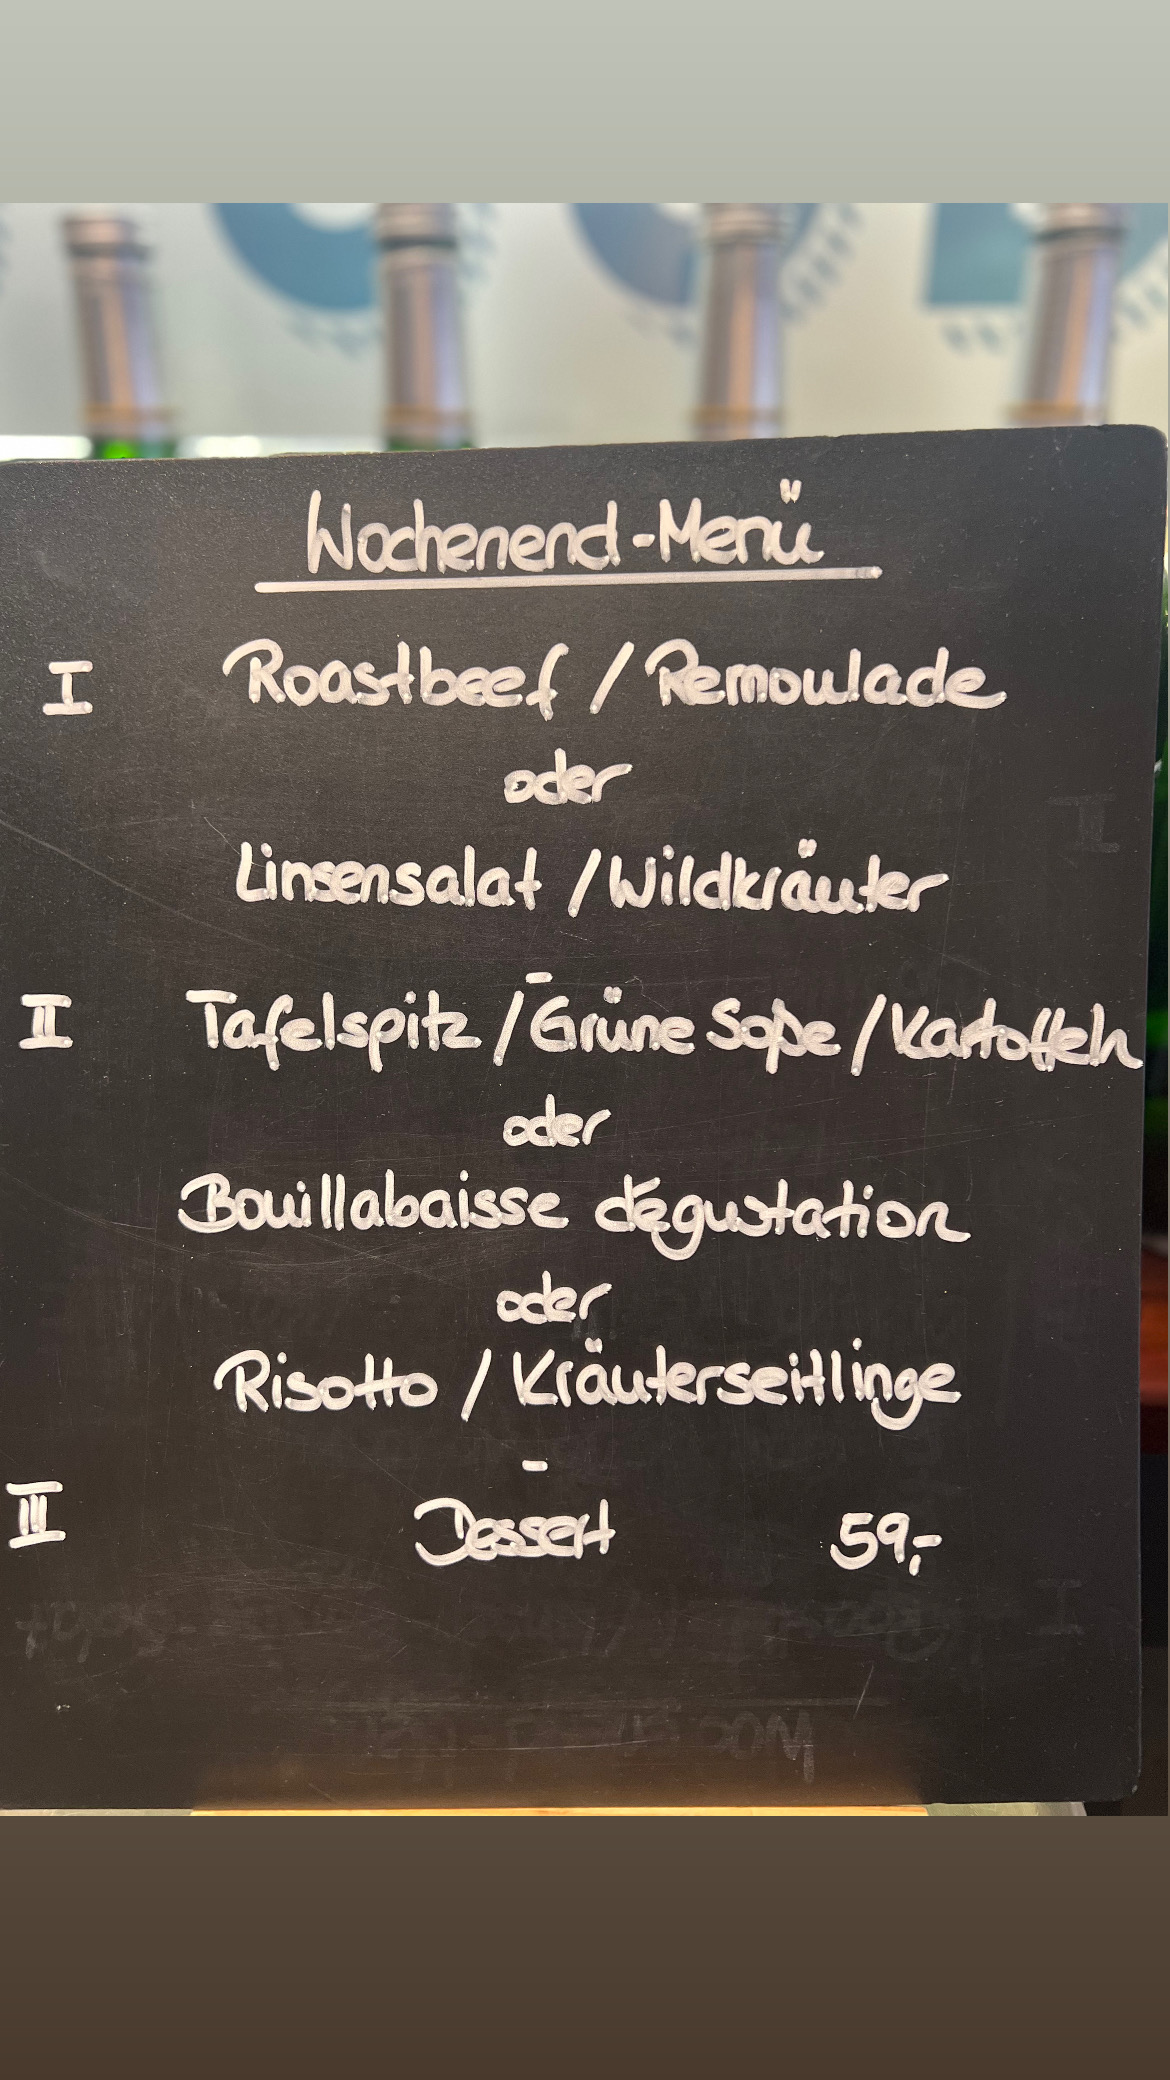 Wochenend-Menü
I Roastbeef / Remoulade
oder
Linsensalat / Wildkräuter
-
II Tafelspitz / Grüne Soße / Kartoffeln
oder
Bouillabaisse dégustation
oder
Risotto / Kräuterseitlinge
-
III Dessert 59,-